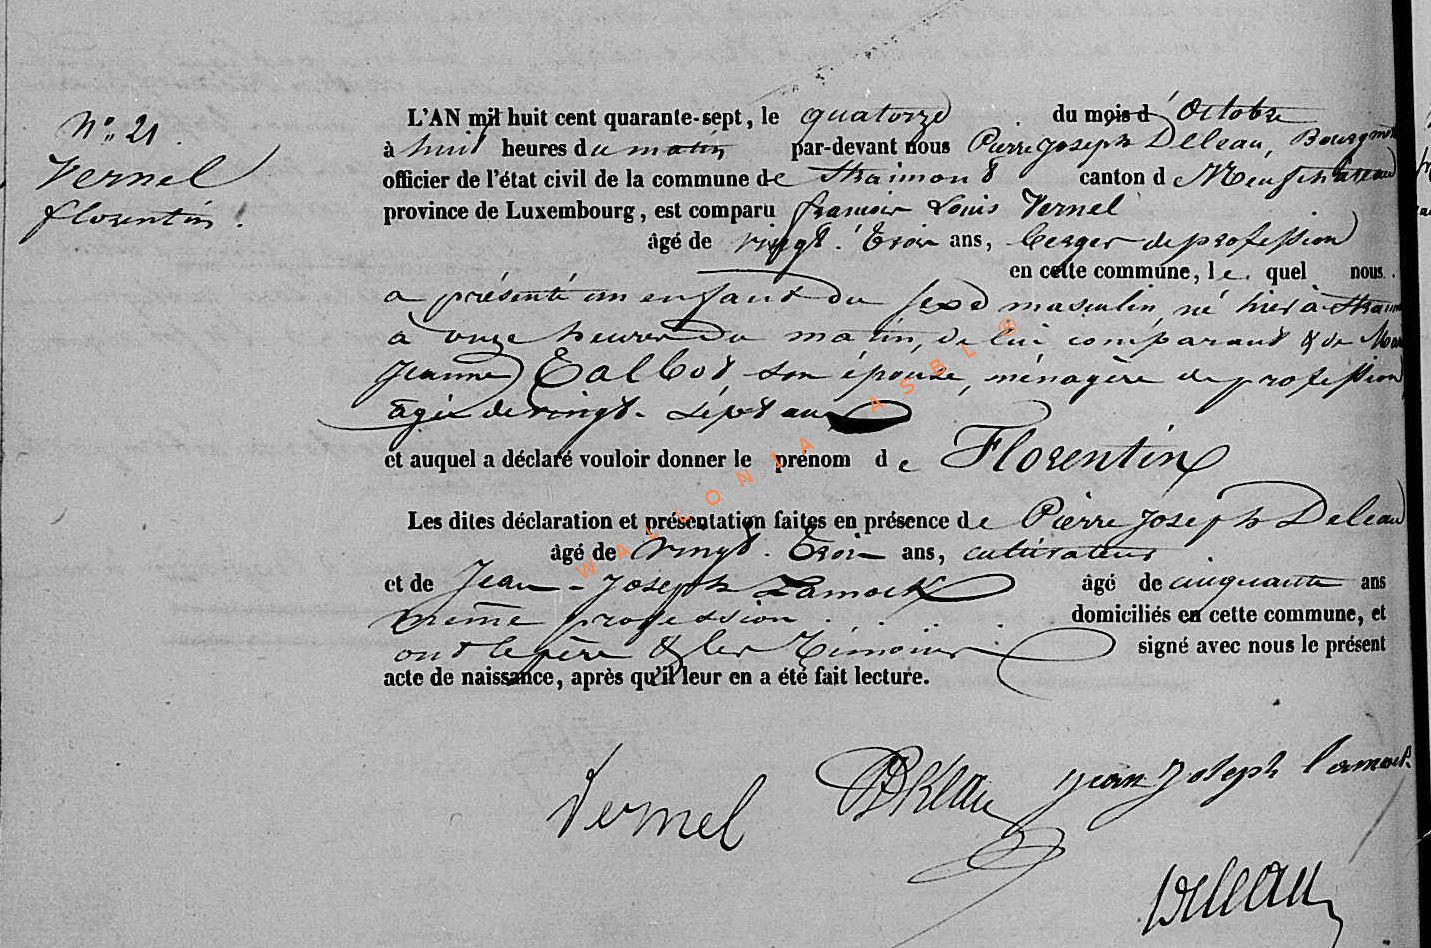 N° 21
Vernel
florentin.
L'AN mil huit cent quarante-sept, le quatorze du mois d'Octobre
à huit heures du matin par-devant nous Pierre Joseph Deleau, Bourgm
officier de l'état civil de la commune de Straimont canton de Neufchateau
province de Luxembourg, est comparu françois Louis Vernel
âgé de vingt-trois ans, berger de profession
en cette commune, le quel nous
a présenté un enfant du sexe masculin, né hier à Straim
à onze heures du matin, de lui comparant & de Mari
Jeanne Talbot, son épouse, ménagère de profession
âgée de vingt-sept ans
et auquel a déclaré vouloir donner le prénom de Florentin
Les dites déclaration et présentation faites en présence de Pierre Joseph Deleau
âgé de vingt-trois ans, cultivateur
et de Jean-Joseph Lamock âgé de cinquante ans
même profession domiciliés en cette commune, et
ont le père & les témoins signé avec nous le présent
acte de naissance, après qu'il leur en a été fait lecture.
Vernel PDeleau jean Joseph lamock
Deleau
WALLONIA ASBL ®